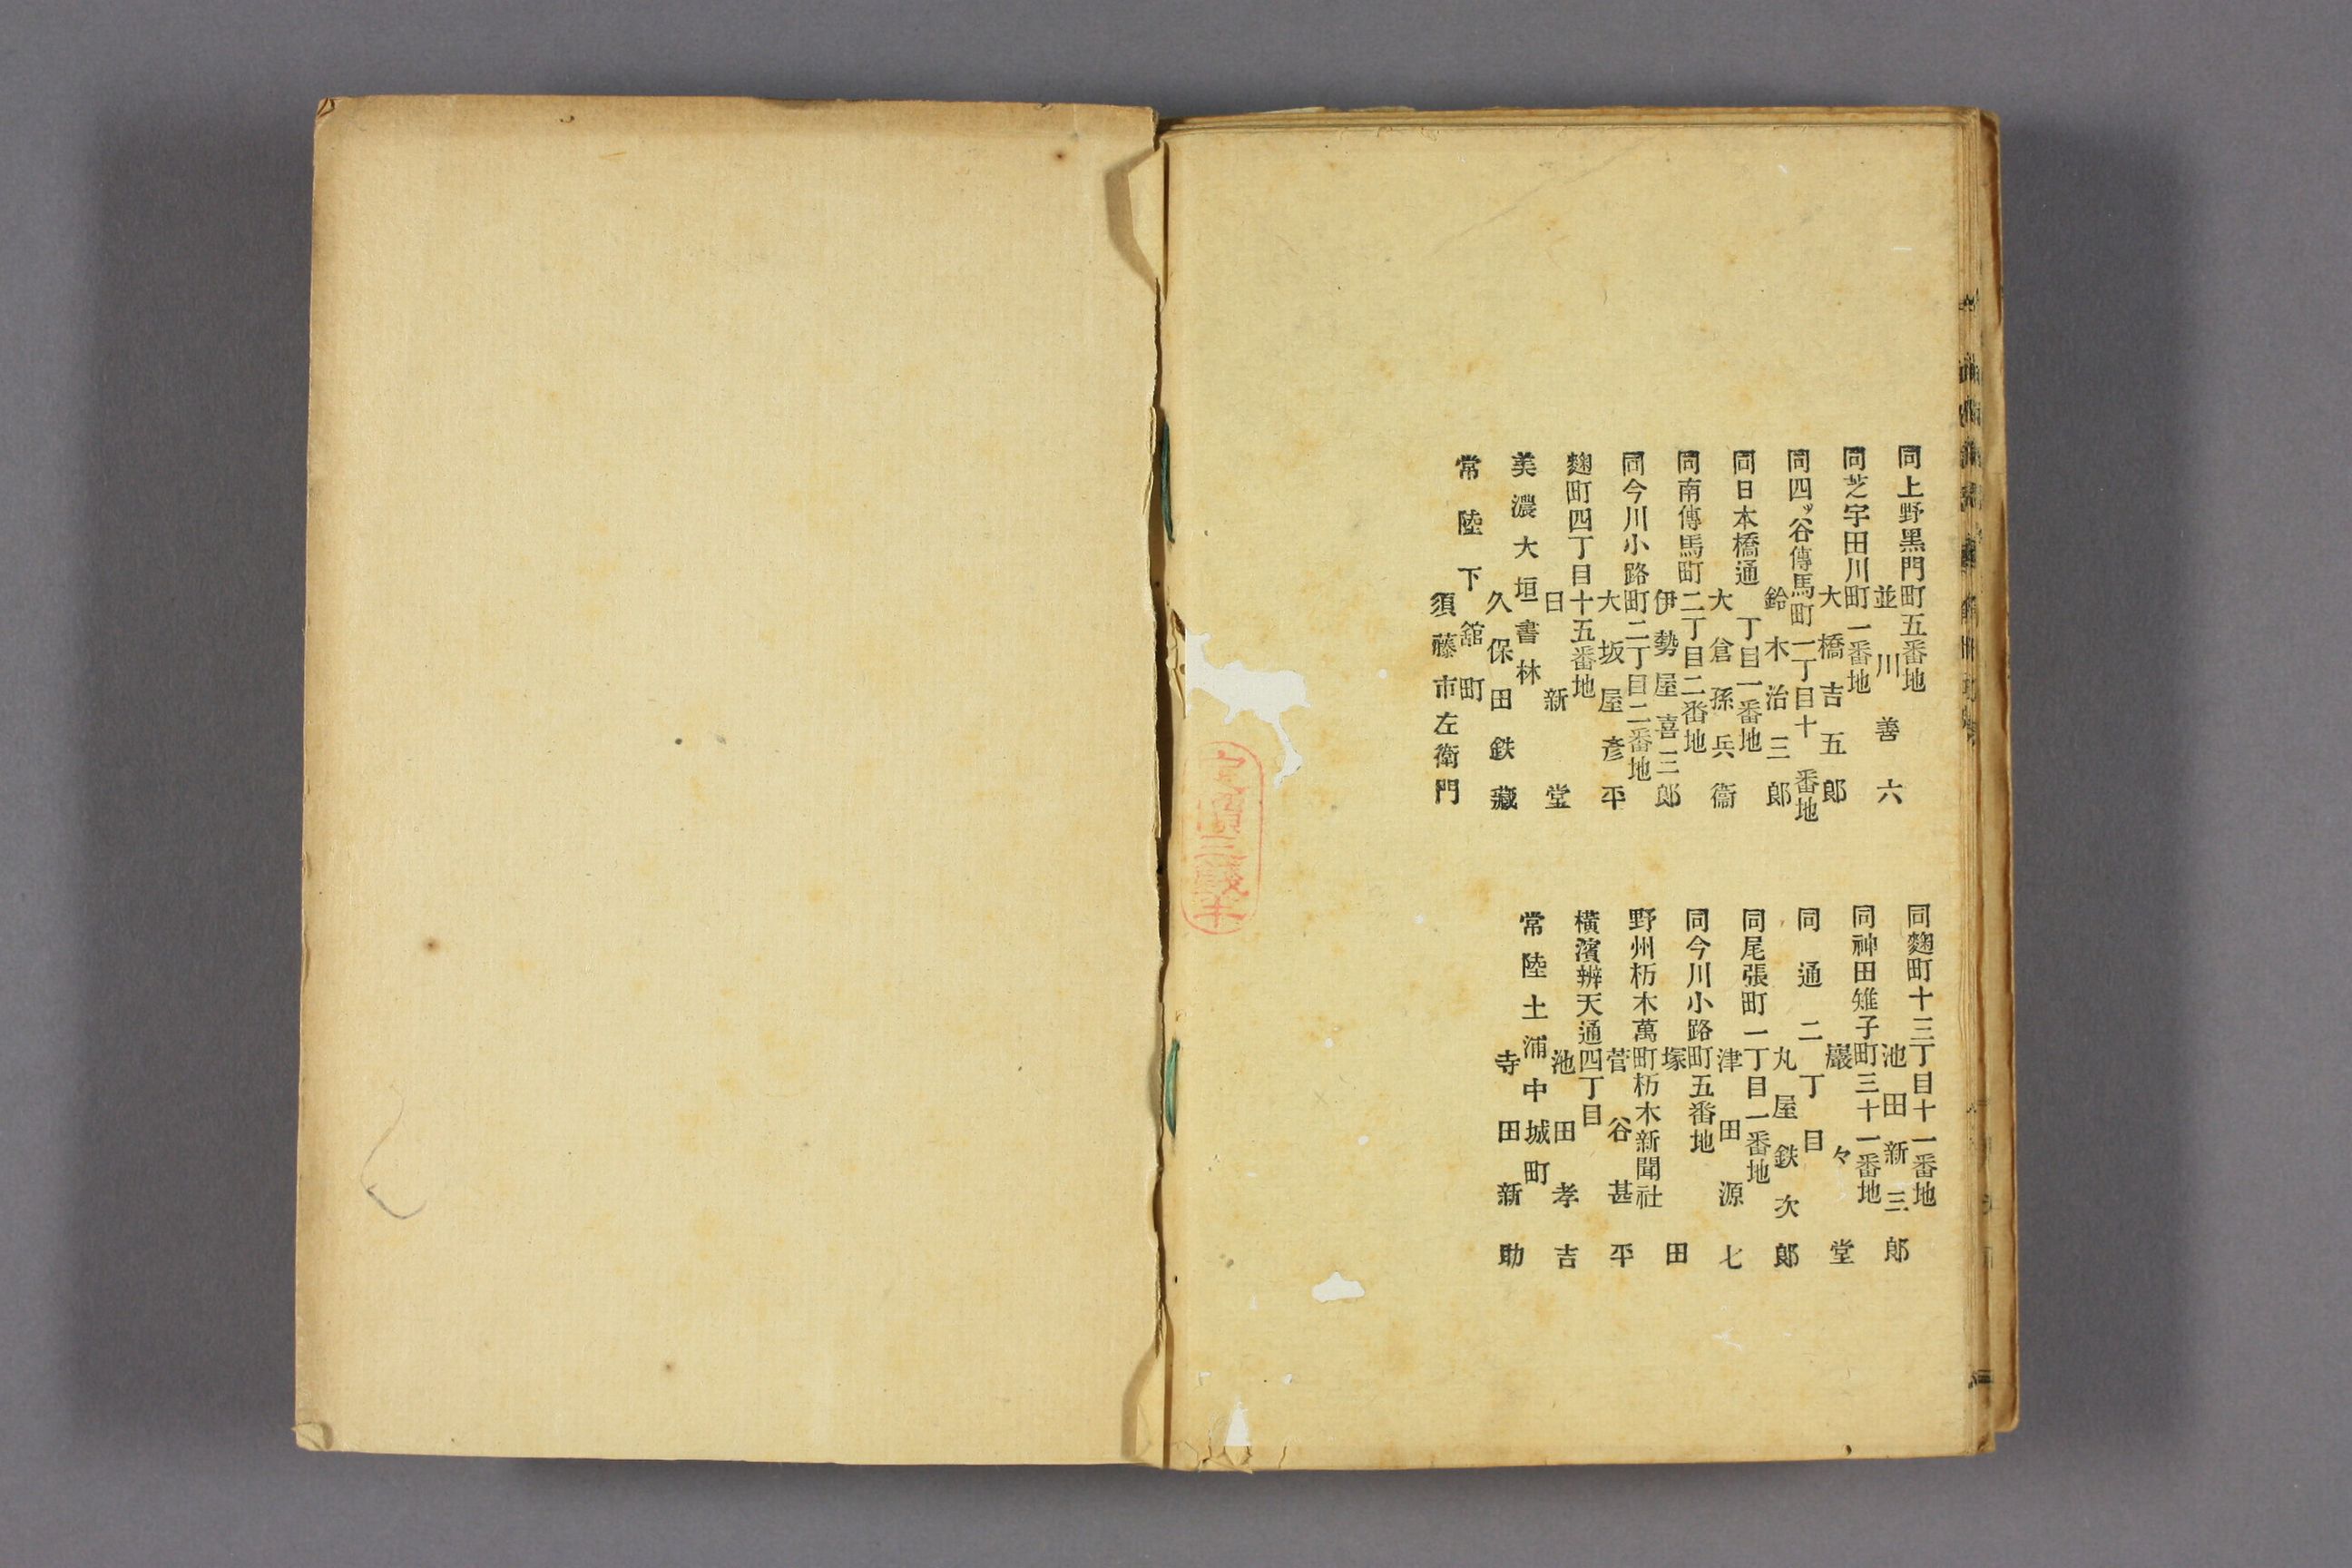 同上野黒門町五番地
並川善六
同芝宇田川町一番地
大橋吉五郎
同四ッ谷傳馬町一丁目十番地
鈴木治三郎
同日本橋通一丁目一番地
大倉孫兵衞
同南傳馬町二丁目二番地
伊勢屋喜三郎
同今川小路町二丁目二番地
大坂屋彥平
麹町四丁目十五番地
日新堂
美濃大垣書林
久保田鉄藏
常陸下舘町
須藤市左衛門
同麹町十三丁目十一番地
池田新三郎
同神田雉子町三十一番地
巖々堂
同通二丁目
丸屋鉄次郎
同尾張町一丁目一番地
津田源七
同今川小路町五番地
塚田
野州栃木萬町栃木新聞社
菅谷甚平
橫濱辨天通四丁目
池田孝吉
常陸土浦中城町
寺田新助